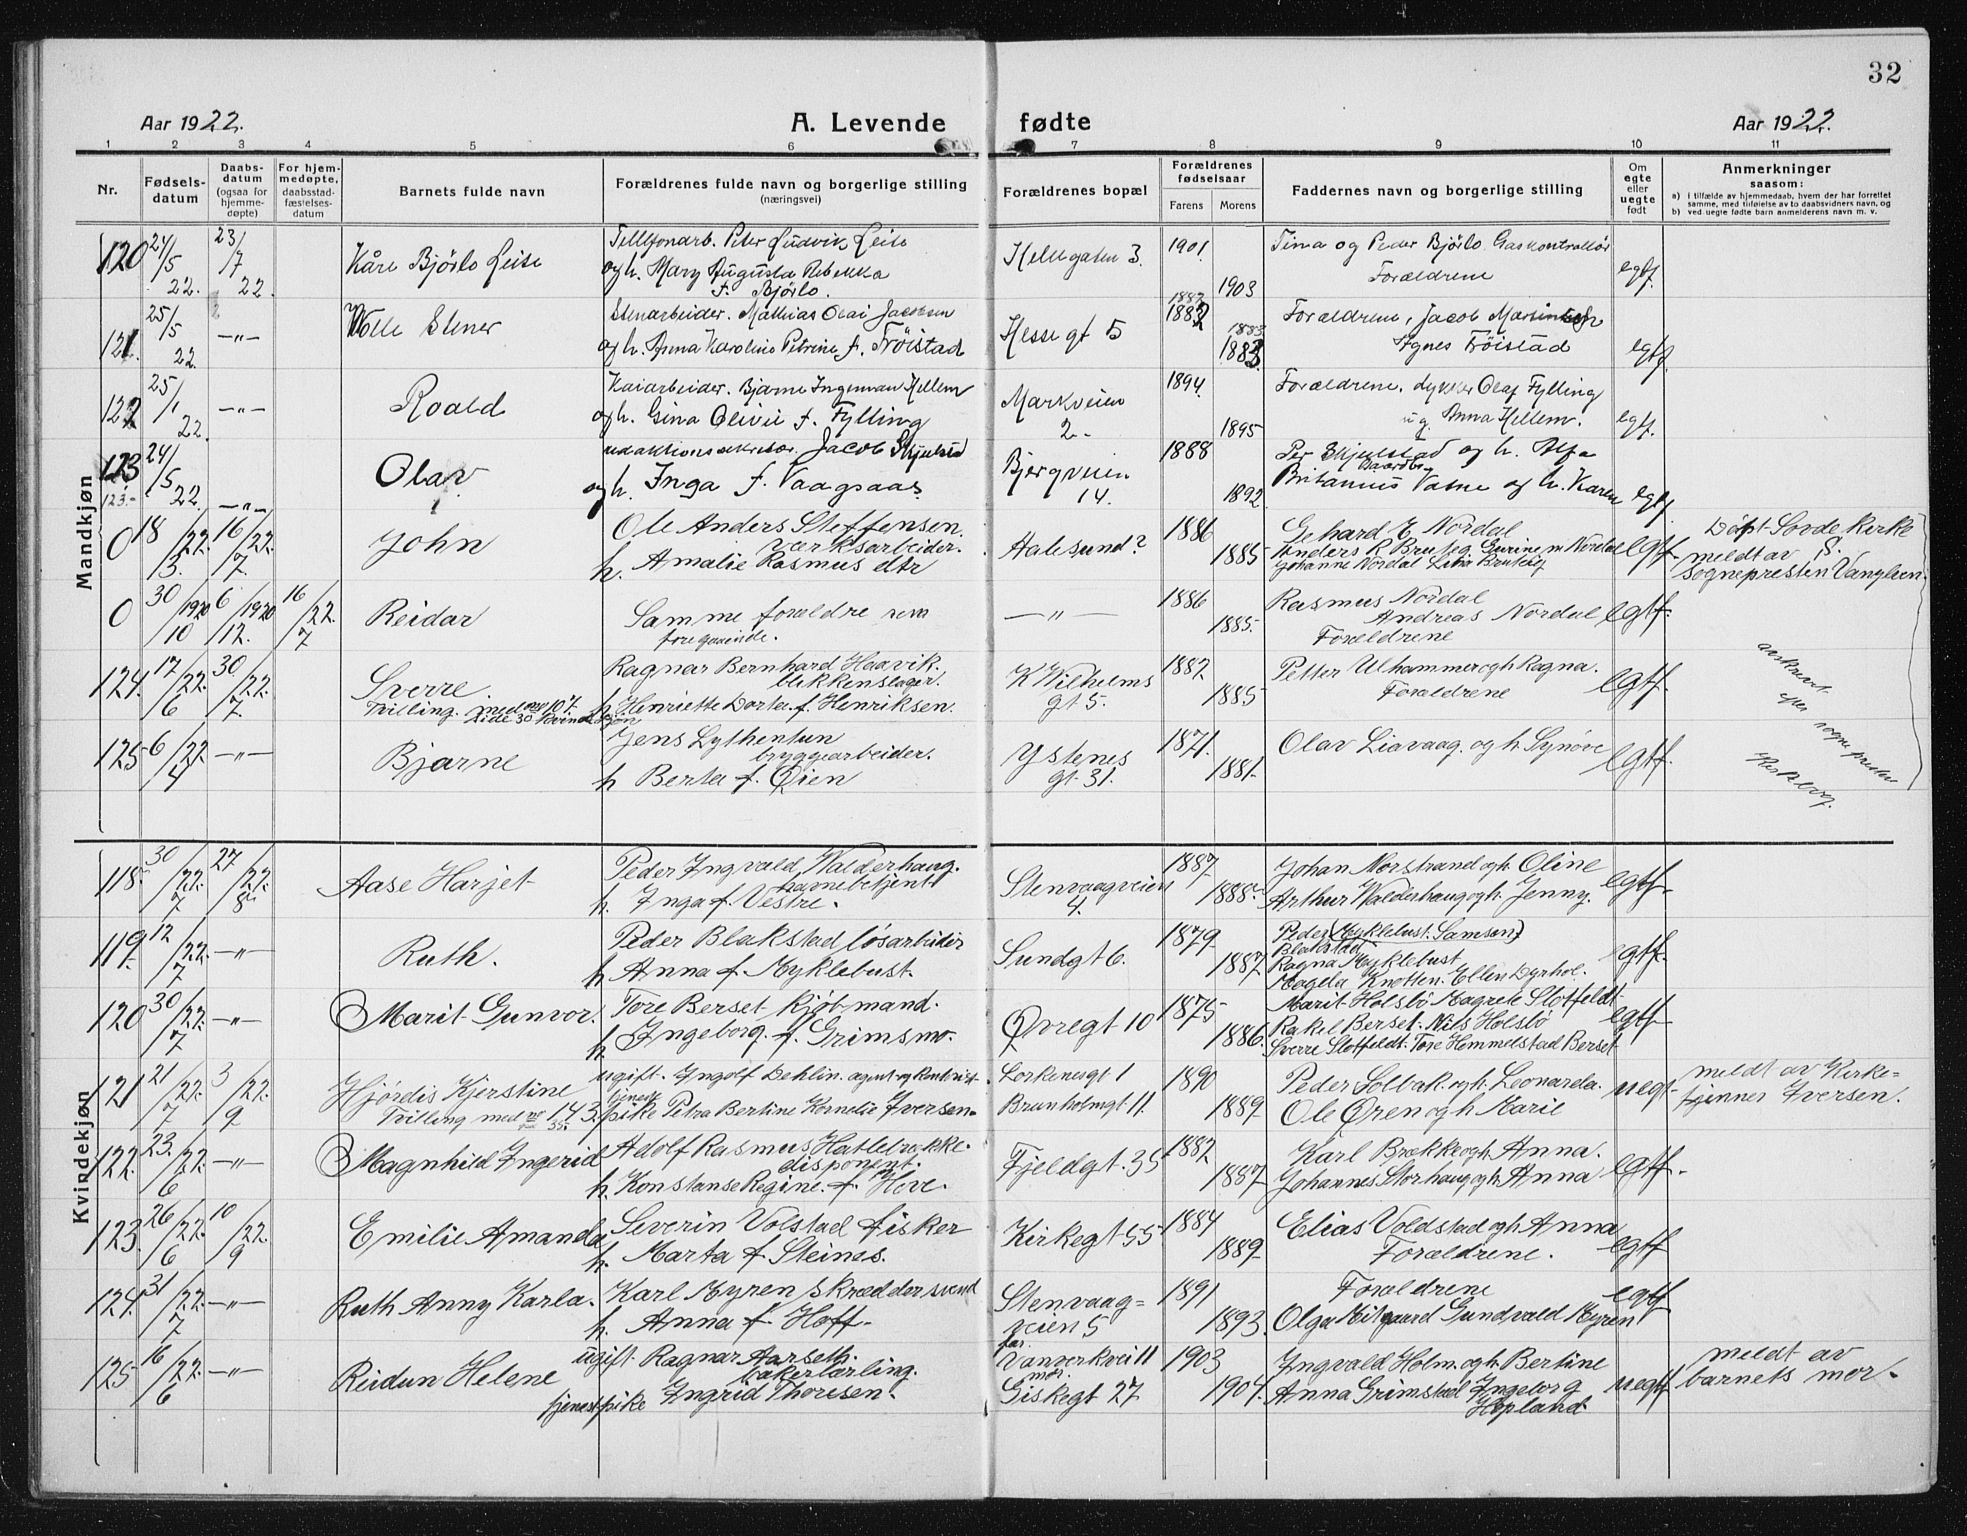 32
Aar 1922.
A. Levende fødte
Aar 1922.
1 2 3 4 5 6 7 8 9 10 11
Nr.
Fødsels-
datum
Daabs-
datum
(ogsaa for
hjemme-
døpte)
For hjem-
medøpte,
daabsstad-
fæstelses-
datum
Barnets fulde navn
Forældrenes fulde navn og borgerlige stilling
(næringsvei)
Forældrenes bopæl
Forældrenes
fødselsaar
Farens Morens
Faddernes navn og borgerlige stilling
Om
egte
eller
uegte
født
Anmerkninger
saasom:
a) i tilfælde av hjemmedaab, hvem der har forrettet
samme, med tilføielse av to daabsvidners navn, og
b) ved uegte fødte barn anmelderens navn m. v.
Mandkjøn
120 24/5 22. 23/7 22
Kåre Bjørlo Leite
Peter Ludvik Leite
og h. Mary Augusta Rebekka
f. Bjørlo.
Helkgaten 3.
1901
1903
og Peder Bjørlo Gaskontrollør
Forældrene
egtf.
121. 25/5 22. -"-
Stener
Stenarbeider. Mathias Olai Jacobsen
og h. Anna Karoline Petrine f. Trøistad
Hesse gt 5
1882
1883
Forældrene, Jacob
Agnes Trøistad
egtf.
122 25/1 22. -"-
Roald
Kaiarbeider. Bjarne Ingeman Hellem
og h. Gina Olivie f. Fylling
Markveien
2-
1894.
1895
Forældrene, Olaf Fylling
ug. Anna Hellem.
egtf.
123 24/5 22. -"-
123-
Olav
redaktionssekretær. Jacob Skjulstad
og h. Inga f. Vaagsaas
Bjergveien
14.
1888
1892
Per Skjulstad og h. Alfa
Britannus Vatne og h. Karen
egtf
0 18/3. 22. 16/7. 22.
John
Ole Anders Steffensen.
værksarbeider.
h. Amalie Rasmus dtr
Aalesund?
1886
1885
Gehard E Nordal
Anders R Bruteg Gurine m Nordal
Johanne Nordal Lina Bruteig
egtf.
Døpt Sovde Kirke
meldt av S.
Sognepresten Vanglein.
0 30/10 1920 6/12. 1920 16/7 22.
Reidar
Samme foreldre som
foregaaende.
-"-
1886
1885.
Rasmus Nordal
Andreas Nordal
Foreldrene
egtf.
124. 17/6 22. 30/7. 22.
Sverre.
Tvilling. med no 107.
side 30 Kvindekjøn
Ragnar Bernhard Haavik.
blikkenslager.
h Henriette Dortea f. Henriksen.
K Wilhelms
gt 5.
1882
1885
Petter Ulhammer og h Ragna.
Forældrene
egtf.
125 6/4 22. -"-
Bjarne
Jens Lythentun
bryggearbeider.
h Berta f. Øien
Ystenes
gt. 31.
1871.
1881.
Olav Liavaag. og h. Synøve
egtf.
Kvindekjøn
118. 30/7 22. 27/8 22.
Aase Harjet
Peder Ingvald Walderhaug.
havnebetjent
h. Inga f. Vestre.
Stenvaagveien
4.
1887
1888.
Johan Norstrand og h. Oline
Arthur Walderhaug og h. Jenny.
egtf.
119. 12/7 22. -"-
Ruth.
Peder Blakstad løsarbeider
h Anna f. Myklebust.
Sundgt 6.
1879
1887.
Peder (Myklebust. Samsen)
Blakstad
Ragna Myklebust
Magda Knotten. Ellen Dyrhol.
egtf.
120 30/7 22. -"-
Marit Gunvor.
Tore Berset kjøbmand.
h. Ingeborg. f. Grimsmo.
Øvregt 10
1875
1886.
Marit Holsbø Magrete Slotfeldt
Rakel Berset. Nils Holsbø
Sverre Slotfeldt. Tore Hemmelstad Berset
egtf
121 21/7 22. 3/9 22.
Hjørdis Kjerstine
Tvilling med no 143
ugift. Ingolf Dehlin. agent og Kontorist.
tjenestpike Petra Bertine Kornelie Iversen
Lorkenesgt 1
Brunholmgt 11.
1890
1889
Peder Solbak. og h. Leonarda.
Ole Øren og h Marie
uegt.
meldt av Kirke=
tjenner Iversen.
122. 23/6 22. -"-
Magnhild Ingerid
Adolf Rasmus Hatlebrække.
disponent.
h. Konstanse Regine. f. Hove.
Fjeldgt. 35
1882
1887
Karl Brække og h Anna.
Johannes Storhaug og h Anna
egtf.
123. 26/6 22. 10/9 22.
Emilie Amanda
Severin Volstad fisker
h. Marta f. Steines.
Kirkegt 55
1884
1889
Elias Voldstad og h Anna
Forældrene.
egtf
124. 31/7 22. -"-
Ruth Anny Karla.
Karl Myren skræddersvend
h. Anna f. Hoff.
Stenvaag=
veien 5
1891
1893.
Forældrene
Olga Gundvald Myren
egtf
125 16/6 22. -"-
Reidun Helene
ugift. Ragnar Aarseth.
bakerlærling.
tjenestpike Ingrid Thoresen.
far.
Vanverkvei 11
mor.
Giskegt 27
1903
1904.
Ingvald Holm. og h Bertine
Anna Grimstad Ingeborg
Hopland
uegtf
meldt av
barnets mor.